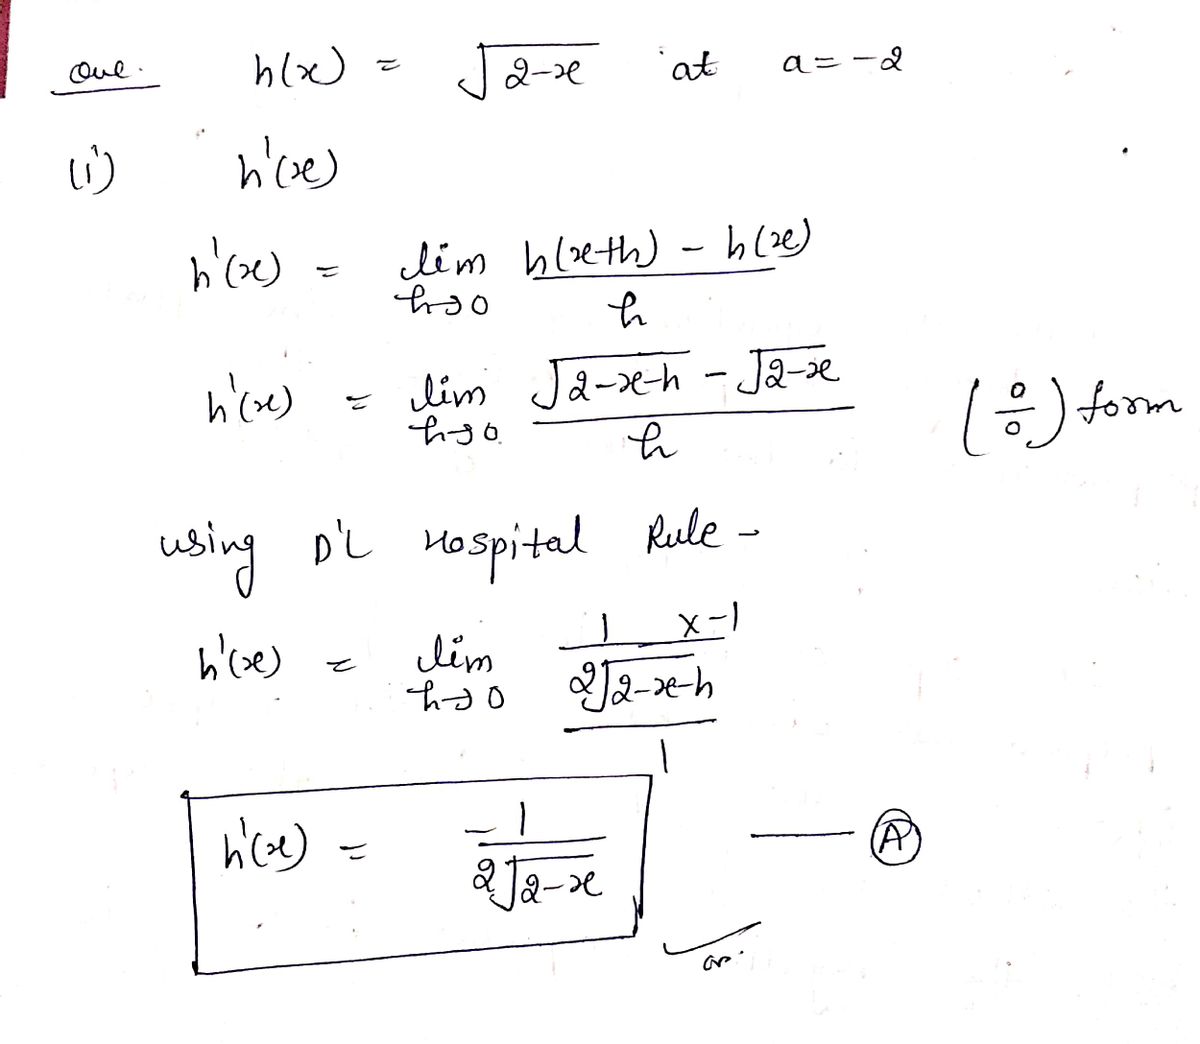 Que. h(x) = √(2-x) at a = -2
(i) h'(x)
h'(x) = lim h→0 (h(x+h) - h(x)) / h
h'(x) = lim h→0 (√(2-x-h) - √(2-x)) / h (0/0) form
using D'L Hospital Rule -
h'(x) = lim h→0 (1/(2√(2-x-h)) × -1) / 1
h'(x) = -1/(2√(2-x)) — (A)